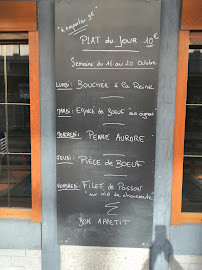 "à emporter 9€
PLAT du JOUR 10€
Semaine du 16 au 20 Octobre
LUNDI: BOUCHÉE à la Reine
MARDI: Émincé de BOEUF "aux oignons"
MERCREDI: PENNE AURORE
JEUDI: PIÈCE de BOEUF
VENDREDI: FILET de POISSON
"au nid de choucroute"
BON APPETIT